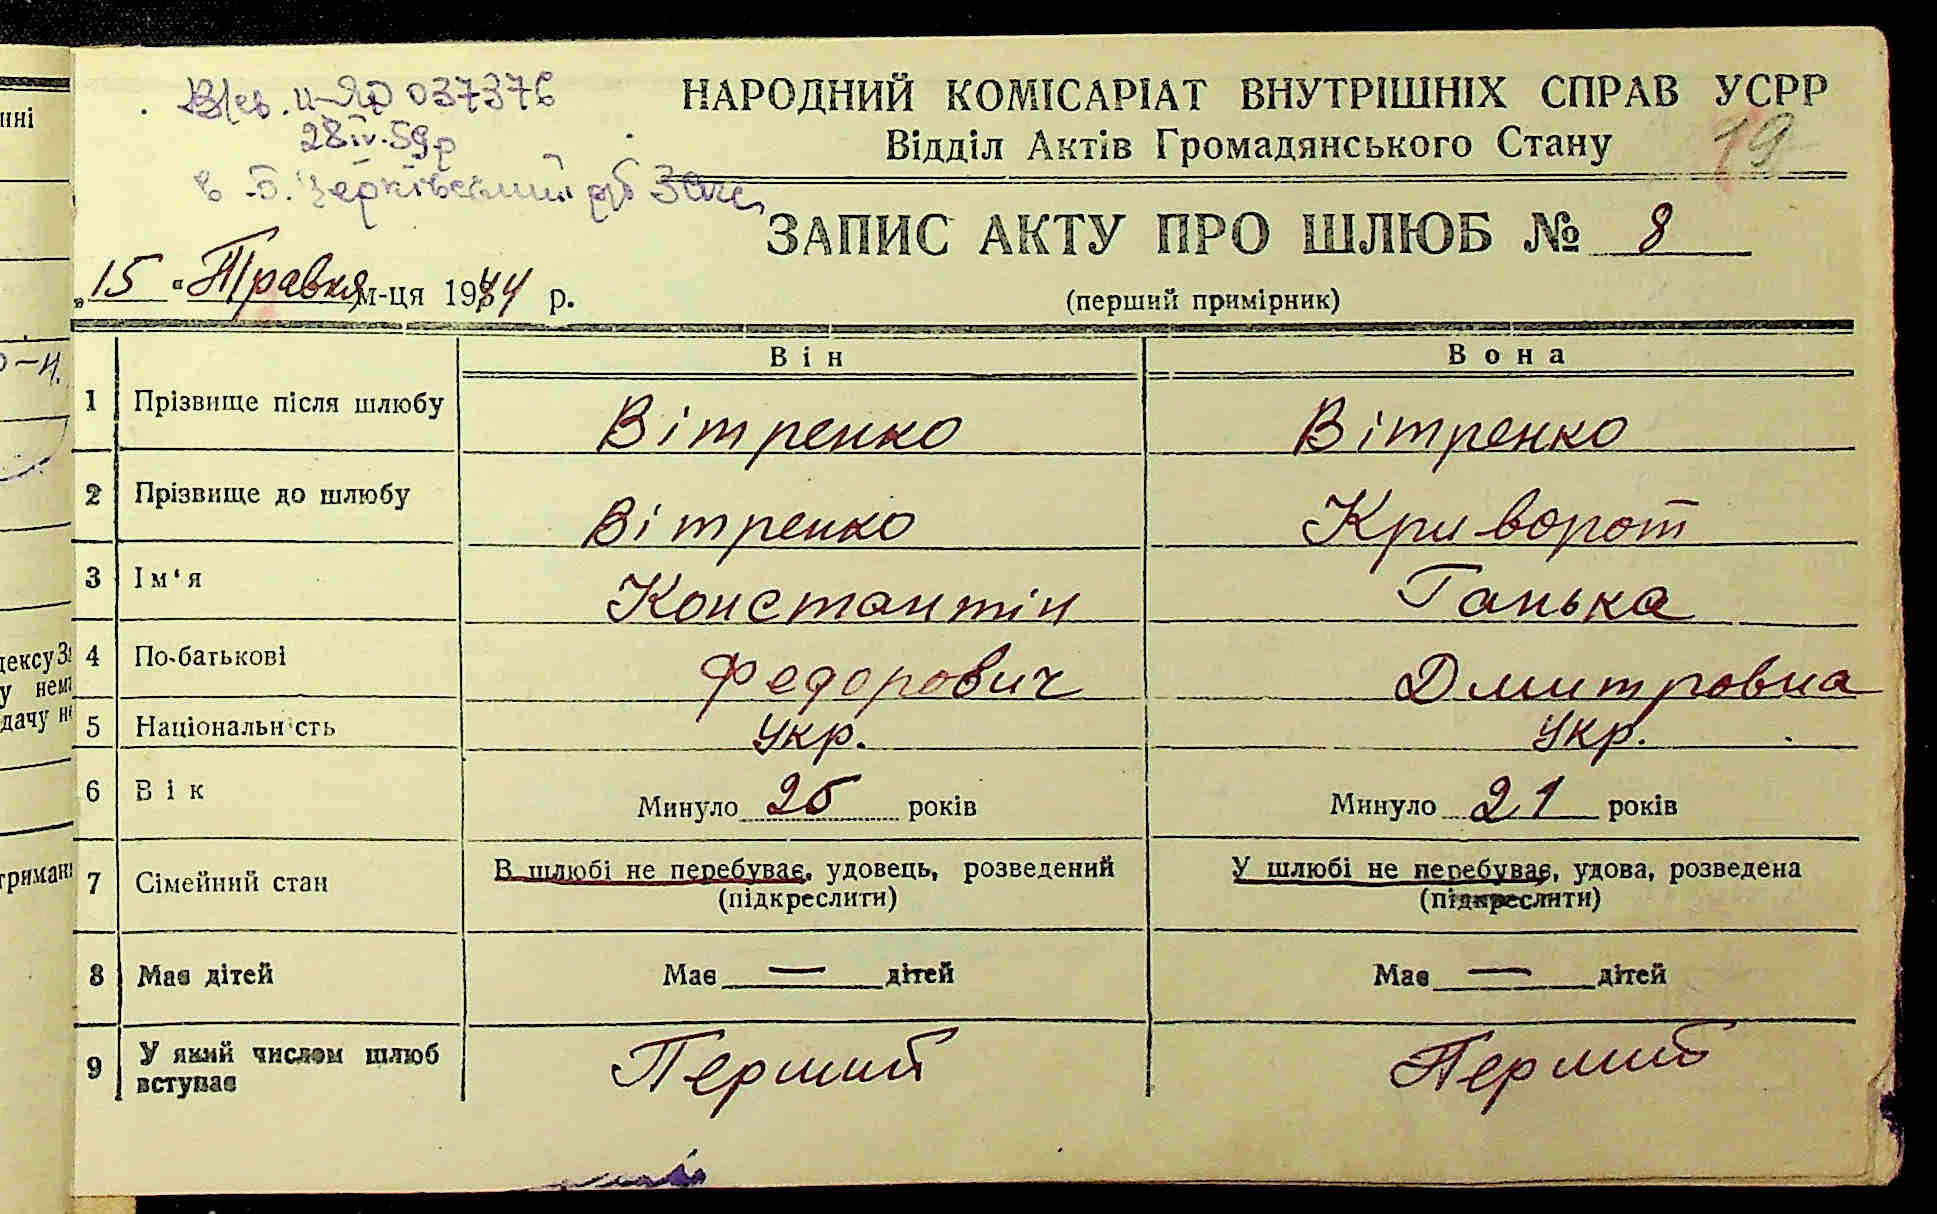 НАРОДНИЙ КОМІСАРІАТ ВНУТРІШНІХ СПРАВ УСРР
Відділ Актів Громадянського Стану
19
037376
28 IV. 59р
в Б. Церківський
ЗАПИС АКТУ ПРО ШЛЮБ № 8
„15“ Травня м-ця 1944 р.
(перший примірник)
Він Вона
1 Прізвище після шлюбу Вітренко Вітренко
2 Прізвище до шлюбу Вітренко Криворот
3 Ім‘я Константін Ганька
4 По-батькові Федорович Дмитровна
5 Національність Укр. Укр.
6 Вік Минуло 25 років Минуло 21 років
7 Сімейний стан В шлюбі не перебуває, удовець, розведений У шлюбі не перебуває, удова, розведена
(підкреслити) (підкреслити)
8 Має дітей Має — дітей Має — дітей
9 У який числом шлюб вступає Перший Перший